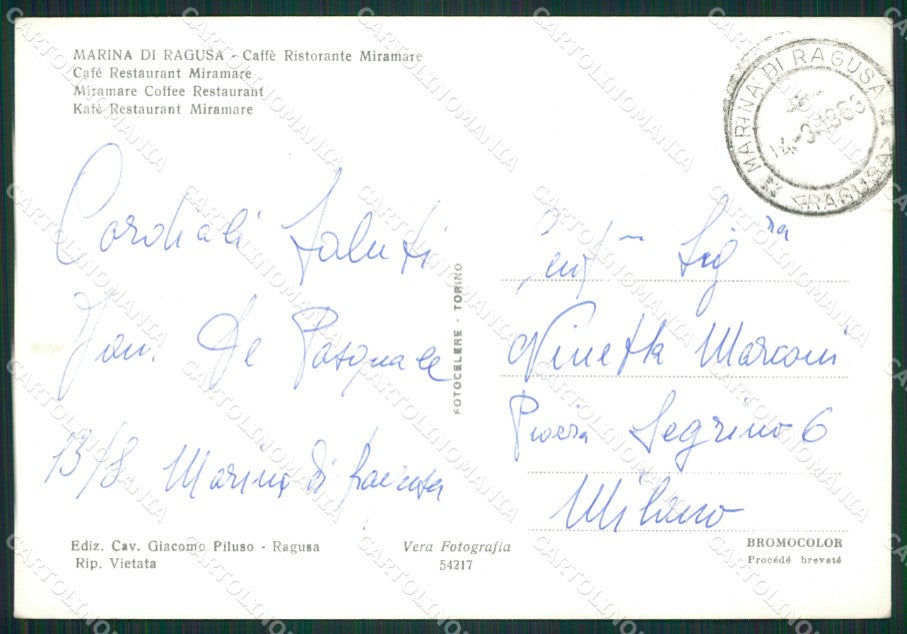 MARINA DI RAGUSA - Caffè Ristorante Miramare
Café Restaurant Miramare
Miramare Coffee Restaurant
Kafé Restaurant Miramare
MARINA DI RAGUSA
(RAGUSA)
Cordiali Saluti
De Pasquale
13/8 Marina di Ragusa
FOTOCELERE - TORINO
Gent Sig ra
Ninetta Marconi
Segrino 6
Milano
Ediz. Cav. Giacomo Piluso - Ragusa
Rip. Vietata
Vera Fotografia
54217
BROMOCOLOR
Procédé breveté
CARTOLINOMANIA